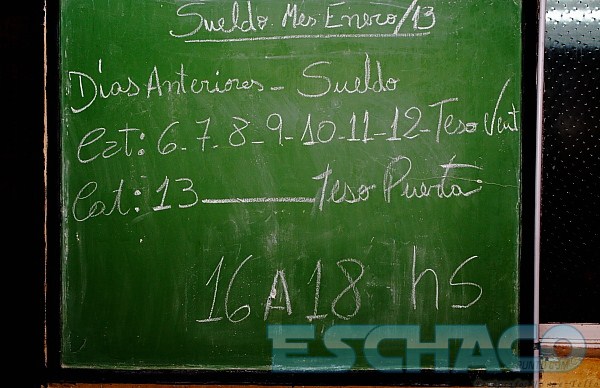 Sueldo Mes Enero/13
Días Anteriores - Sueldo
Cat: 6-7-8-9-10-11-12-Teso Vent
Cat: 13 ——— Teso Puerta
16 A 18 hs
ESCHACO